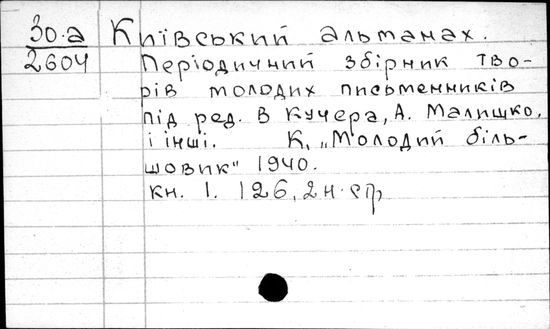 30.а Київський альманах.
2604 Періодичний збірник тво-
рів молодих письменників
під ред. В Кучера, А. Малишко,
і інші. К, „Молодий біль-
шовик" 1940.
кн. 1. 126, 2 н. стр,